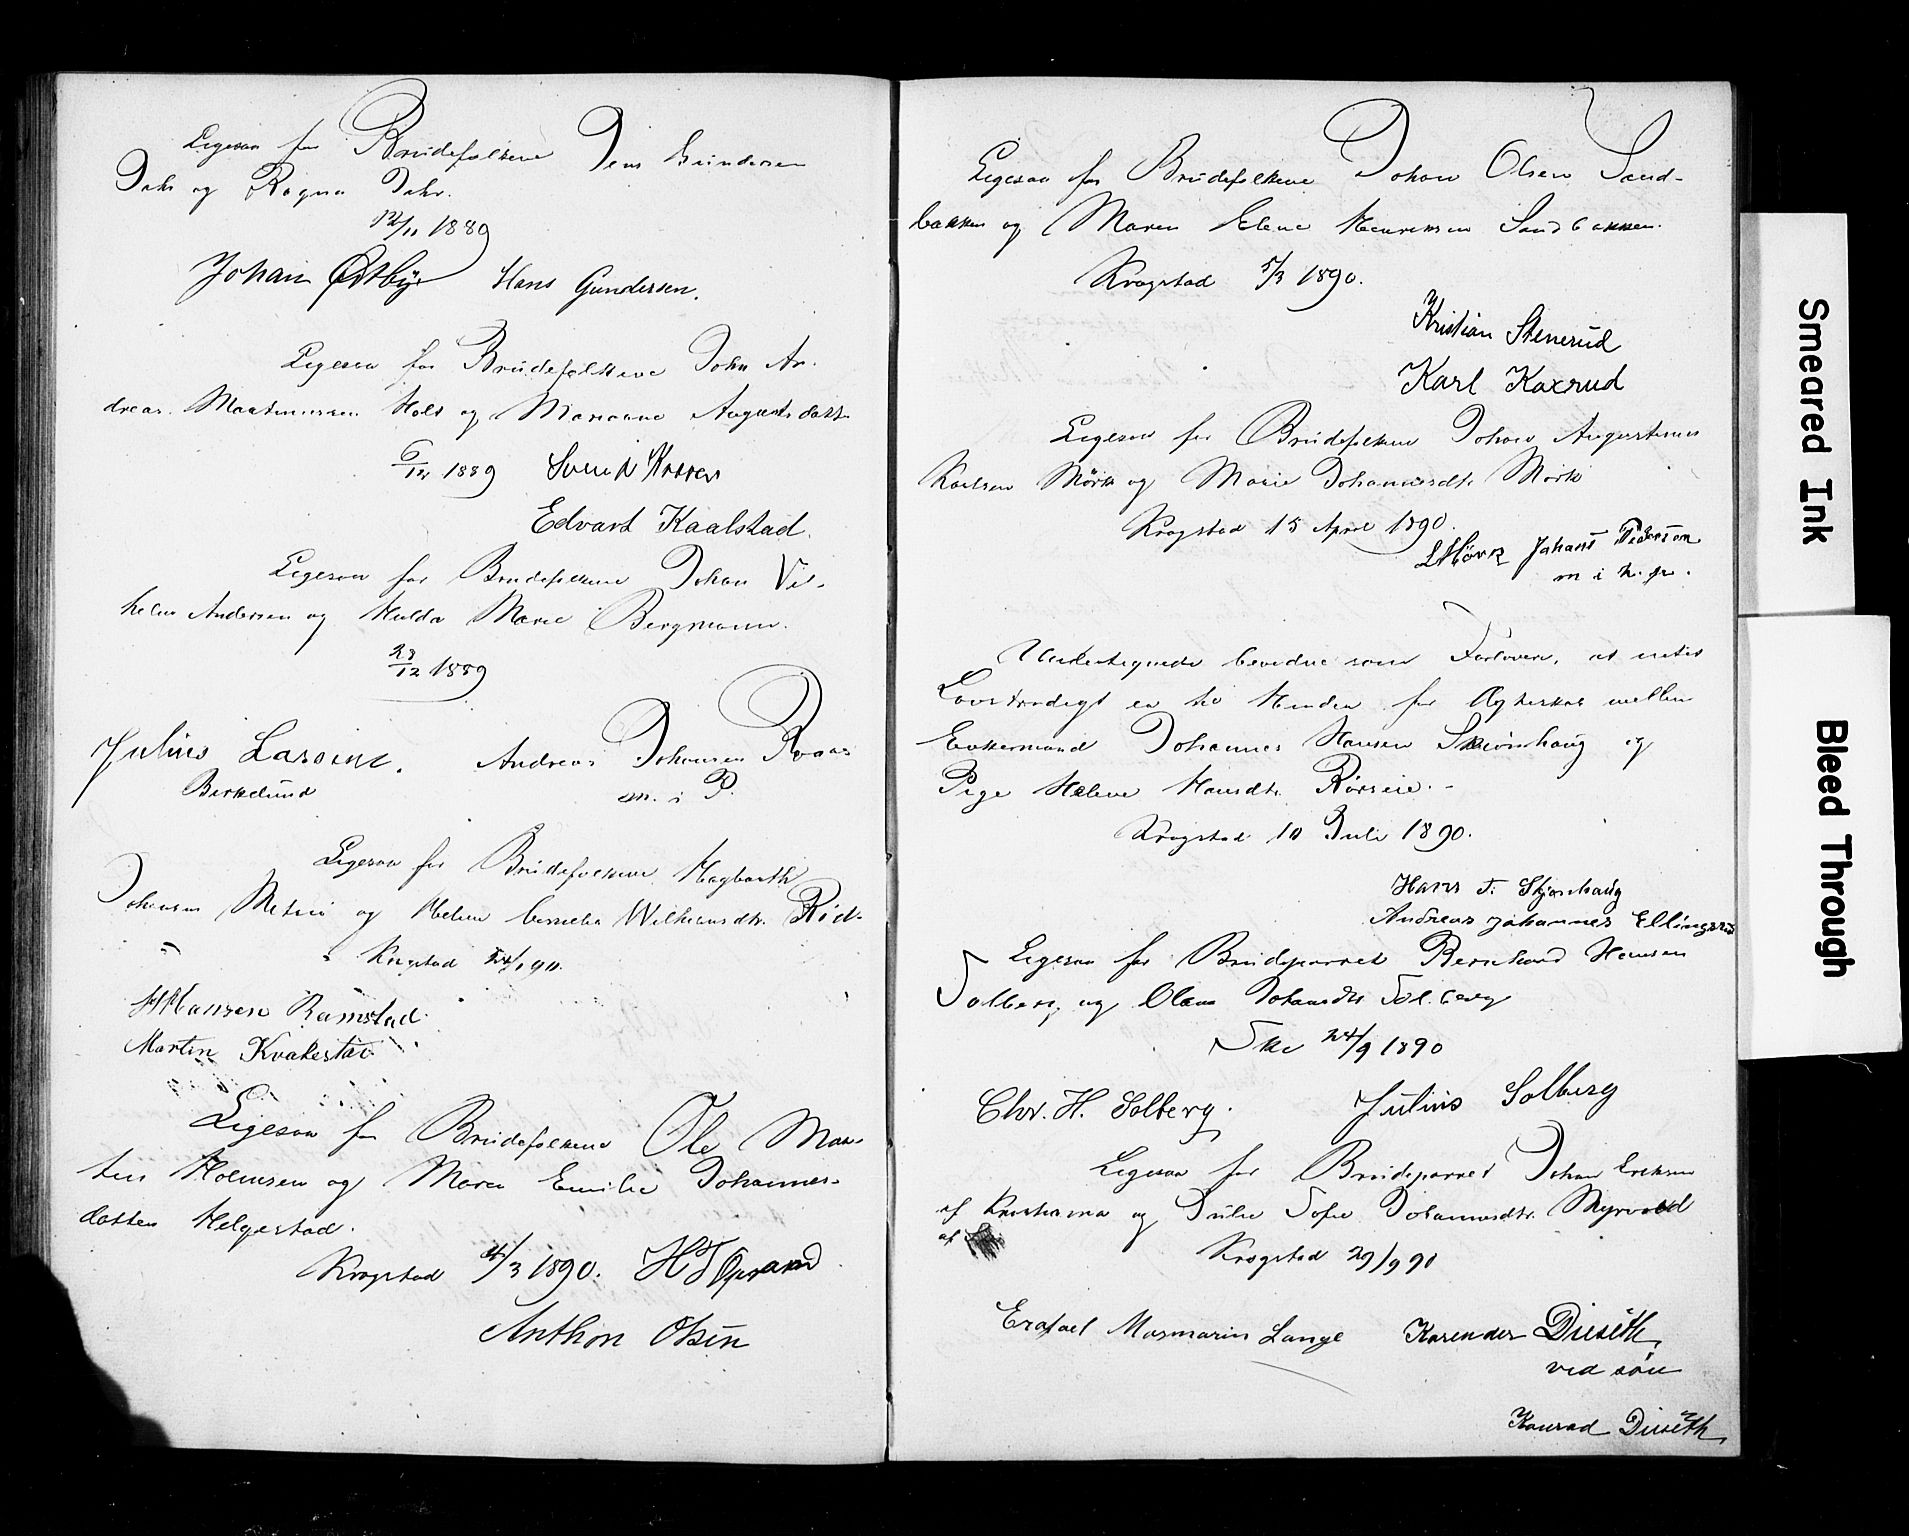 Ligesaa for Brudefolkene Jens Gundersen
Dahr og Ragna Dahr.
12/11 1889
Johan Østbye Hans Gundersen.
Ligesaa for Brudefolkene John An-
dreas Martinussen Holt og Mariane Augustsdatt
6/12 1889
Edvart Kaalstad.
Ligesaa for Brudefolkene Johan Vil-
helm Andersen og Hulda Marie Bergmann.
23/12 1889
Julius Larsine. Andreas Johansen Raaas
Birkelund m. i P.
Ligesaa for Brudefolkene Hagbarth
Johansen og Helene Cornelia Wilhelmsdtr. Rød-
Krogstad 24/1 90.
H Hansen Ramstad
Martin Kvakestad
Ligesaa for Brudefolkene Ole Mar-
tin Holmsen og Maren Emilie Johannes-
datter Helgestad.
Krogstad 4/3 1890. H T Opsand
Anthon Olsen
Ligesaa for Brudefolkene Johan Olsen Sand-
bakken og Maren Elene Henriksen Sandbakken.
Krogstad 5/3 1890.
Kristian Stenerud
Karl Kaxrud
Ligesaa for Brudefolkene Johan Augustinus
Karlsen Mørk og Marie Johannesdtr. Mørk
Krogstad 15 April 1890.
L Mörk Johans Pederson
m i h. p.
Undertegnede bevidne som Forlovere, at intet
Lovstridigt er til Hinder for Ægteskab mellem
Enkemand Johannes Hansen Skiønhaug og
Pige Helene Hansdtr. Rørseie.
Krogstad 10 Juli 1890.
Hans T. Skjønhaug
Andreas Johannes Ellingsrud
Ligesaa for Brudeparret Bernhard Hansen
Solberg og Olava Johansdtr Solberg
Ski 24/9 1890
Chr. H. Solberg. Julius Solberg
Ligesaa for Brudeparret Johan Eriksen
af Kristiania og Julie Sofie Johannesdtr. Myrvold
af
Krogstad 29/9 90
Erafael Mosmarin Lange Karender Duseth,
ved søn
Konrad Duseth,
Smeared Ink
Bleed Through